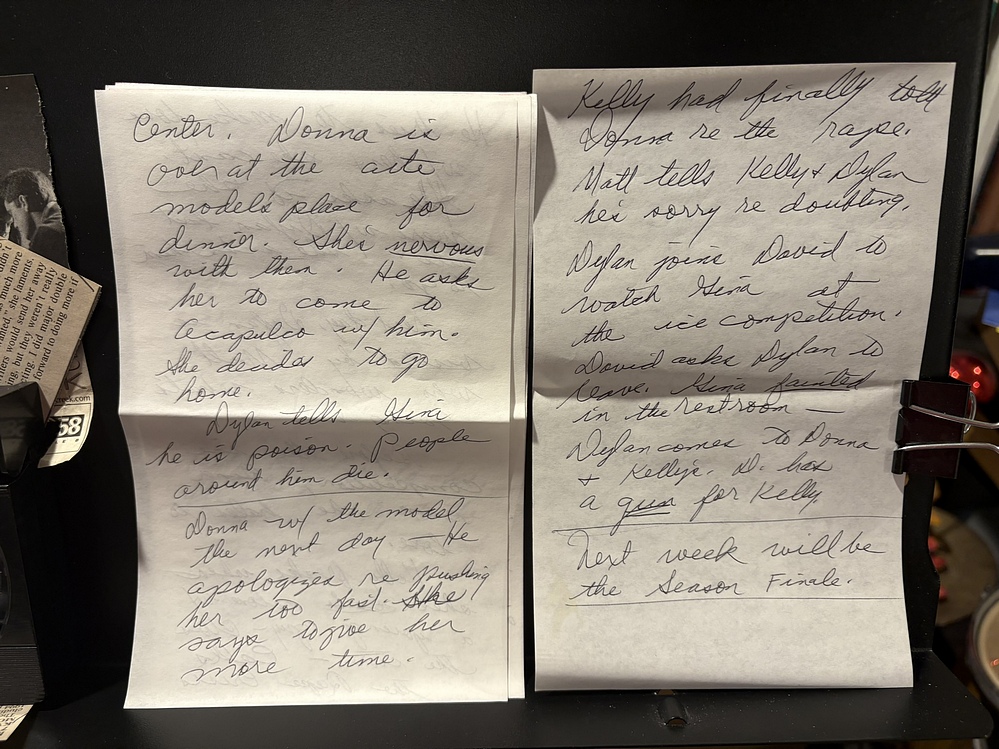 Center. Donna is
over at the
model's place for
dinner. She's nervous
with them. He asks
her to come to
Acapulco w/ him.
She decides to go
home.
Dylan tells Gina
he is poison. People
around him die.
Donna w/ the model
the next day — He
apologizes re pushing
her too fast. She
says to give her
more time.
Kelly had finally told
Donna re the rape.
Matt tells Kelly + Dylan
he's sorry re doubting.
Dylan joins David to
watch Gina at
the ice competition.
David asks Dylan to
leave. Gina fainted
in the restroom —
Dylan comes to Donna
+ Kelly's. D. has
a gun for Kelly.
Next week will be
the Season Finale.
didn't
as much more
she laments.
would send her away
but they weren't really
I did major double
forward to doing more if
creek.com
58